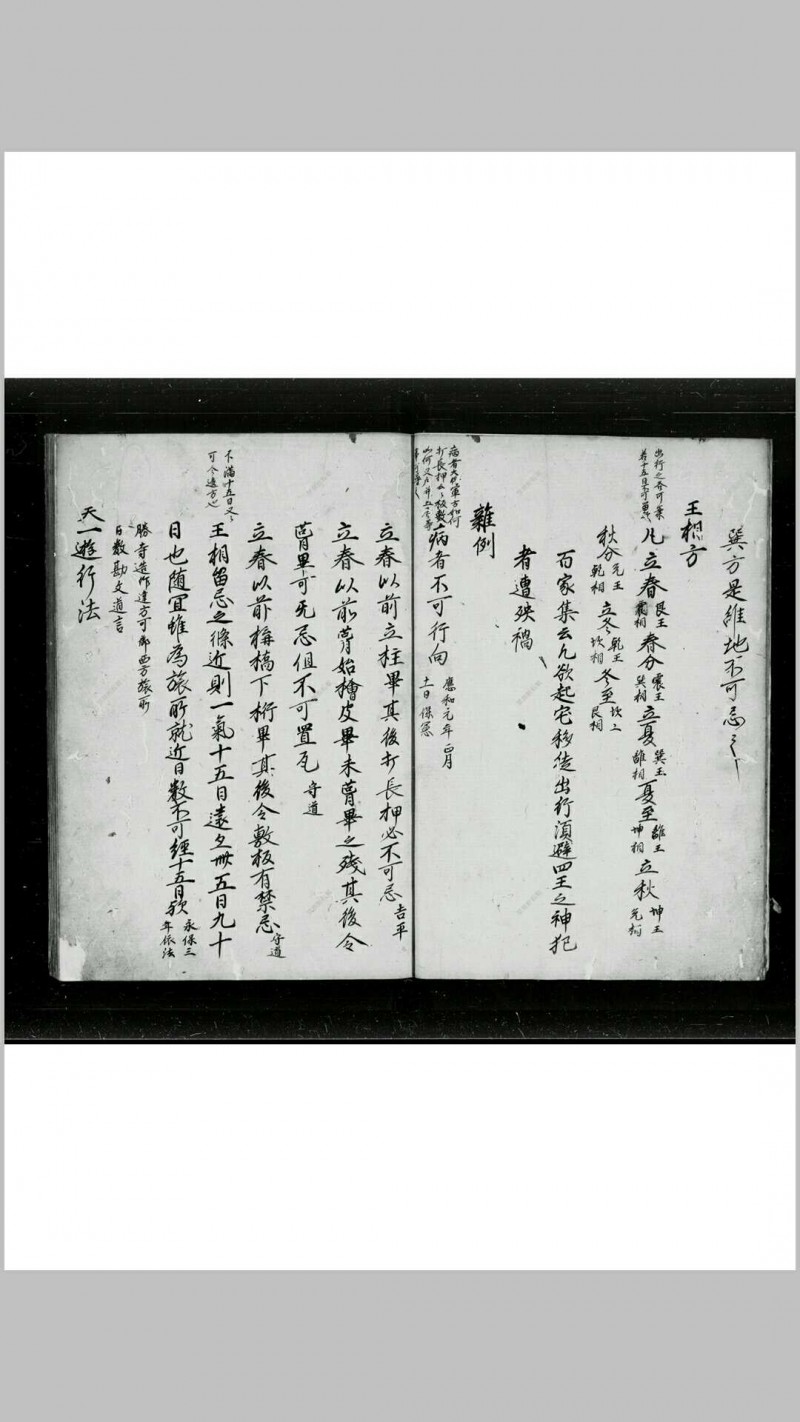 巽方是維地不可忌之
王相方
出行之吝可案
若十五日
凡立春艮王震相春分震王巽相立夏巽王離相夏至離王坤相立秋坤王兌相
秋分兌王乾相立冬乾王坎相冬至坎王艮相
百家集云凡欲起宅移徙出行須避四王之神犯
者遭殃禍
雜例
病者不可行向應和元年正月十一日保憲
病者大將軍方如何
立春以前立柱畢其後打長押必不可忌吉平
立春以前葺始檜皮畢未葺畢之殘其後令
葺畢可无忌但不可置瓦守道
立春以前構橋下桁畢其後令敷板有禁忌守道
不滿十五日
可令違方也
王相留忌之條近則一氣十五日遠久卅五日九十
日也随宜雖為旅所就近日数不可經十五日歟永保三年依法
勝寺造作違方可御西方旅所
日数勘文道言
天一遊行法